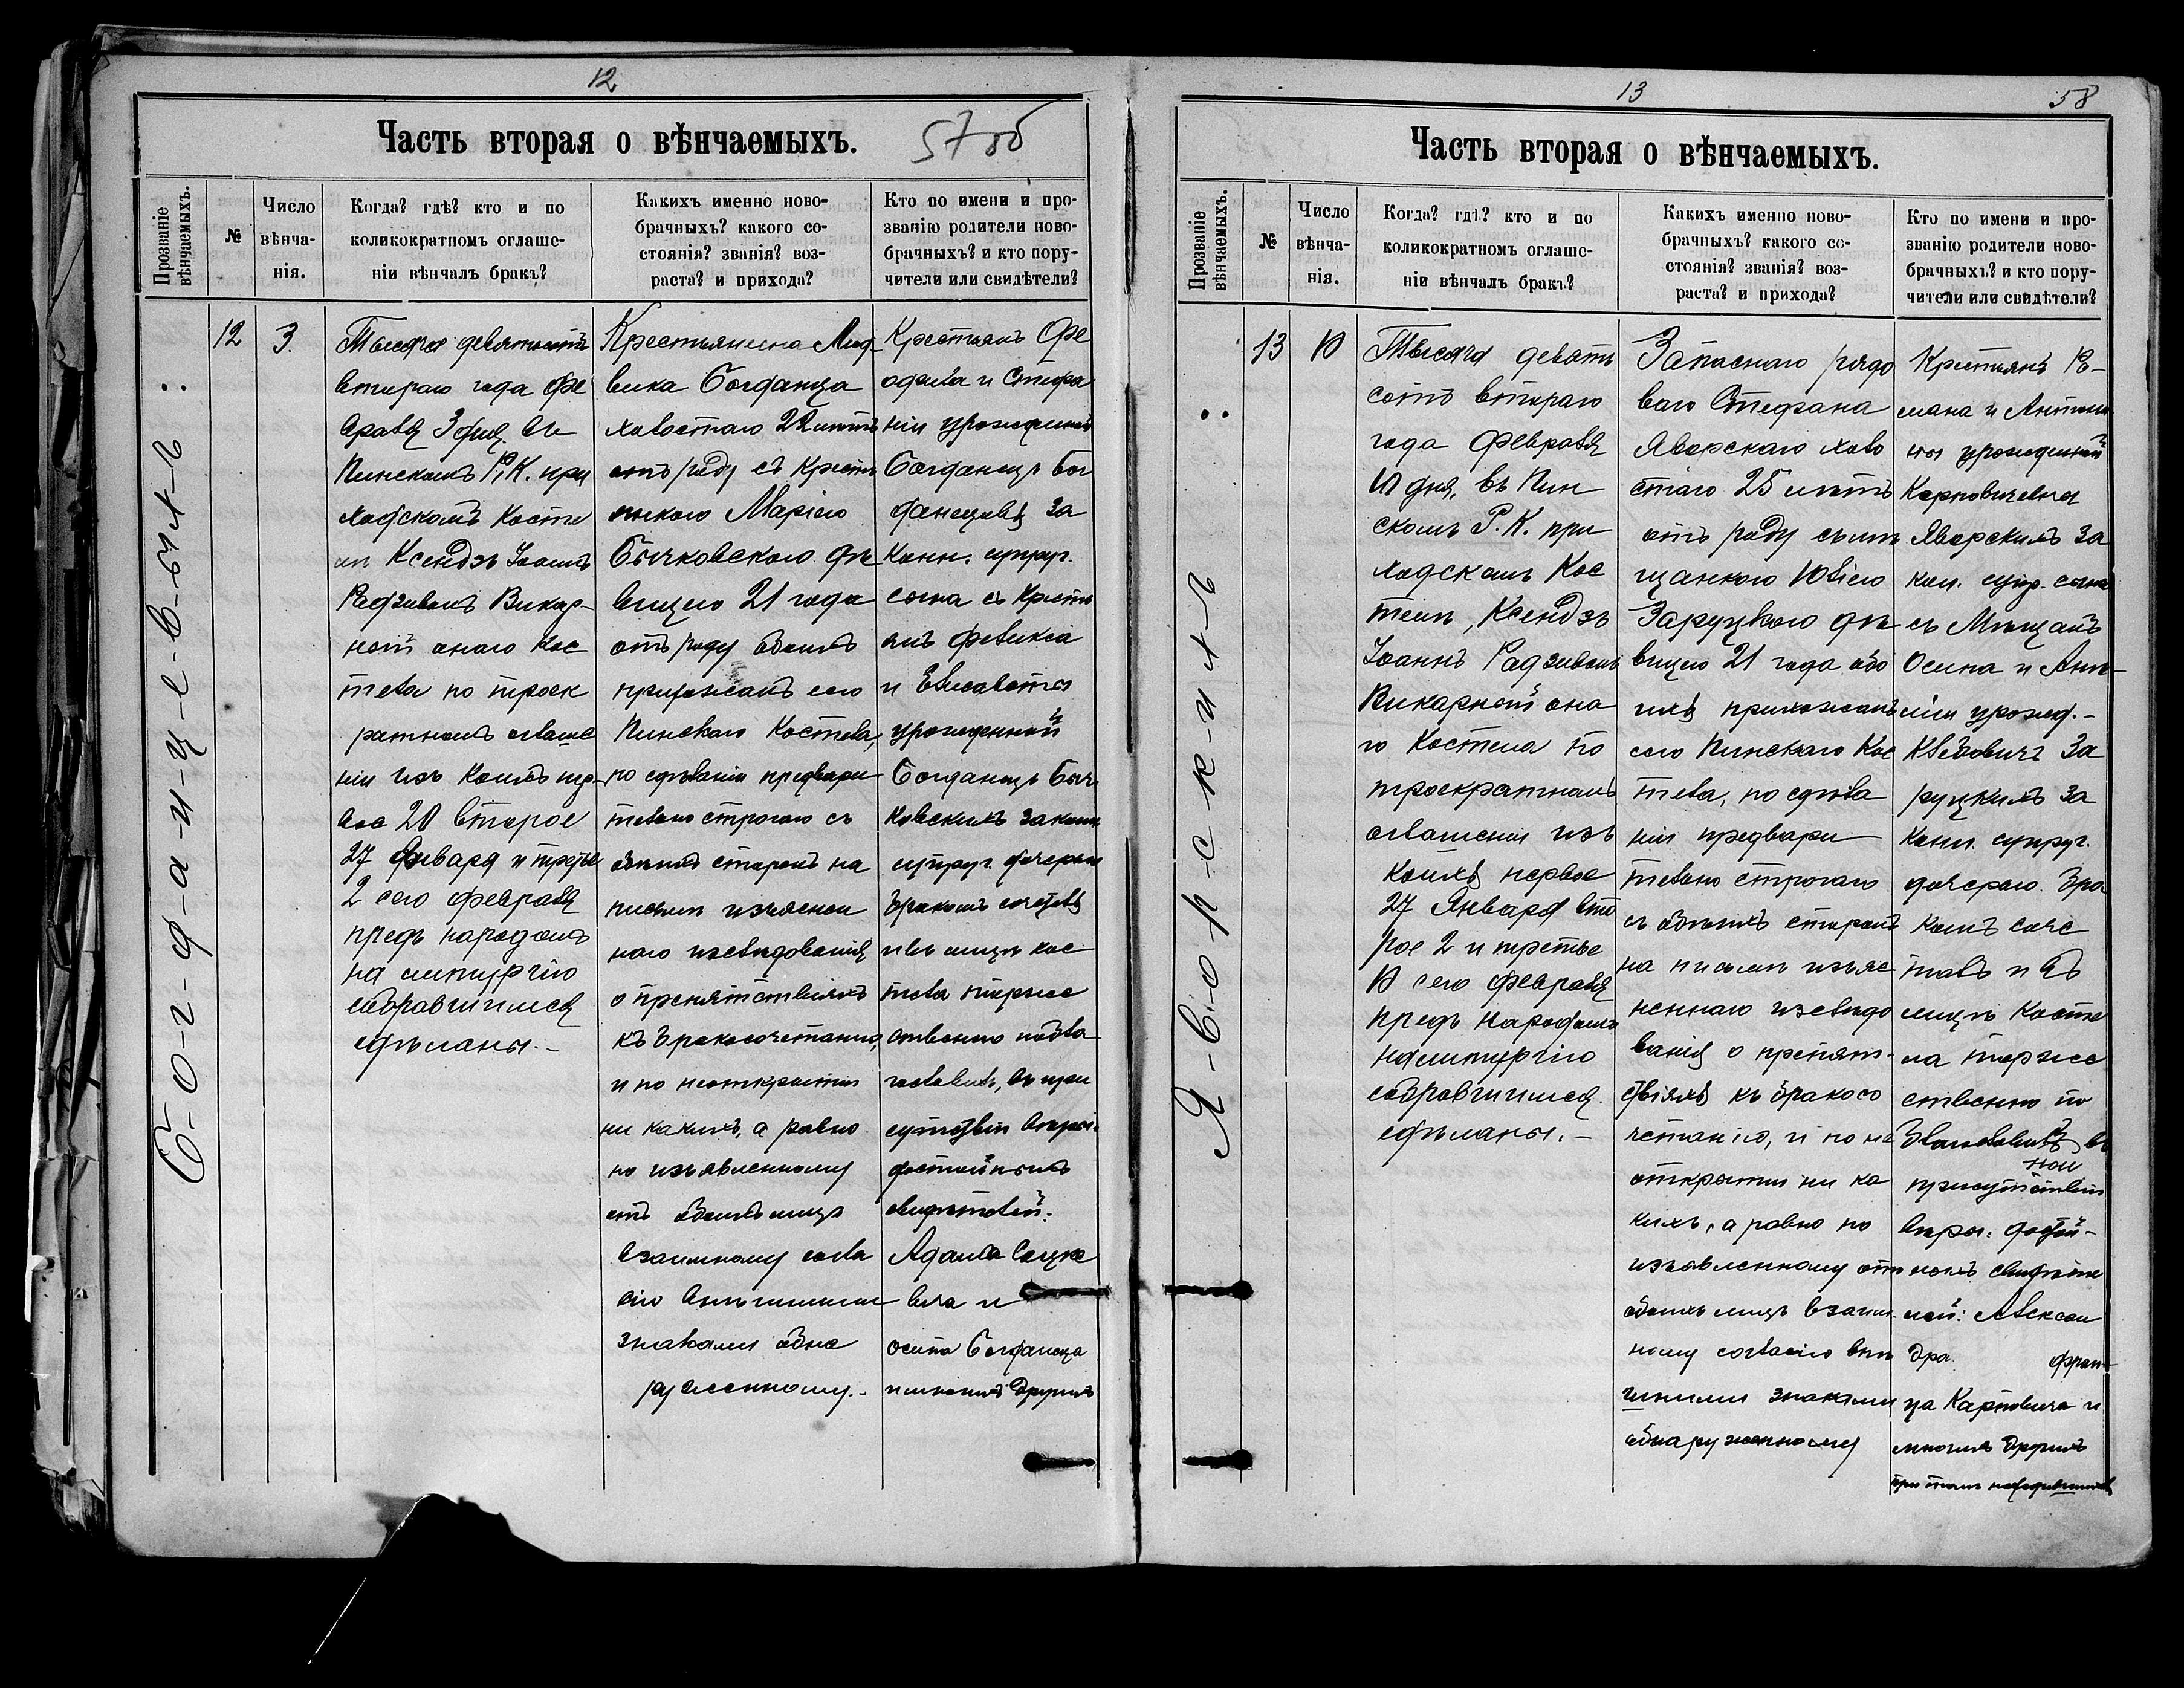 12
Часть вторая о вѣнчаемыхъ.
57 об
Прозваніе вѣнчаемыхъ.
№
Число вѣнча-нія.
Когда? гдѣ? кто и по
коликократномъ оглаше-
ніи вѣнчалъ бракъ?
Какихъ именно ново-
брачныхъ? какого со-
стоянія? званія? воз-
раста? и прихода?
Кто по имени и про-
званію родители ново-
брачныхъ? и кто пору-
чители или свидѣтели?
Б-о-г-д-а-н-ц-е-в-ы-л-ъ
12
3.
Тысяча девятьсотъ
втораго года Фе
враля 3 дня. въ
Пинскомъ Р. К. при
ходскомъ Косте
лѣ Ксендзъ Іоаннъ
Радзивонъ Викар-
ный онаго Кос
тела по троек
ратномъ оглаше
ніи изъ коихъ пер-
вое 20 второе
27 Января и третье
2 сего февраля
предъ народомъ
на литургію
собравшимся
сдѣланы.-
Крестьянина Люд-
вика Богданца
холостаго 22 лѣтъ
отъ роду съ Крестъ
янкою Маріею
Бычковскою дѣ
вицею 21 года
отъ роду обоихъ
прихожанъ сего
Пинскаго Костела,
по сдѣланіи предвари
тельно строгаго съ
обѣихъ сторонъ на
письмѣ изъяснен
наго изслѣдованія
о препятствіяхъ
къ бракосочетанію,
и по неоткрытіи
ни какихъ, а равно
по изъявленному
отъ обоихъ лицъ
взаимному согла
сію внѣшними
знаками обна
руженному.-
Крестьянъ Фе
офила и Стефа
ніи урожденной
Богданецъ Бог
данцовъ за
конн. супруг.
сына съ Кресть
янъ Феликса
и Елисаветы
урожденной
Богданецъ Быч
ковскихъ законн.
супруг. дочерью
бракомъ сочеталъ
и въ лицѣ кос
тела торже
ственно побла
гословилъ, въ при
сутствіи вѣры.
достойныхъ
свидѣтелей:
Адама Сацке
вича и
Осипа Богданца
и многихъ другихъ
13
58
Часть вторая о вѣнчаемыхъ.
Прозваніе вѣнчаемыхъ.
№
Число вѣнча-нія.
Когда? гдѣ? кто и по
коликократномъ оглаше-
ніи вѣнчалъ бракъ?
Какихъ именно ново-
брачныхъ? какого со-
стоянія? званія? воз-
раста? и прихода?
Кто по имени и про-
званію родители ново-
брачныхъ? и кто пору-
чители или свидѣтели?
Я-в-о-р-с-к-и-х-ъ
13
10
Тысяча девять
сотъ втораго
года Февраля
10 дня, въ Пин
скомъ Р. К. при
ходскомъ Кос
телѣ, Ксендзъ
Іоаннъ Радзивонъ
Викарный она
го Костела по
троекратномъ
оглашеніи изъ
коихъ первое
27 Января вто
рое 2 и третье
10 сего Февраля
предъ народомъ
на литургію
собравшимся
сдѣланы.-
Запаснаго рядо
ваго Стефана
Яворскаго холо
стаго 25 лѣтъ
отъ роду съ мѣ
щанкою Юліею
Заруцкою дѣ
вицею 21 года обо
ихъ прихожанъ
сего Пинскаго Кос
тела, по сдѣла
ніи предвари
тельно строгаго
съ обѣихъ сторонъ
на письмѣ изъяс
неннаго изслѣдо
ванія о препят-
ствіяхъ къ бракосо
четанію, и по не
открытіи ни ка
кихъ, а равно по
изъявленному отъ
обоихъ лицъ взаим.
ному согласію внѣ
шними знаками
обнаруженному
Крестьянъ Ро-
мана и Антони
ны урожденной
Карповичевна
Яворскихъ за
кон. супр. сына
съ Мѣщанъ
Осипа и Ант-
ніи урожд.-
За
руцкихъ за
конн. супруг.
дочерью. бра
комъ соче
талъ и въ
лицѣ косте
ла торже
ственно по
благословилъ въ
присутствіи
вѣры. достой-
ныхъ свидѣте
лей: Алексан
дра фран-
ца Карповича и
многихъ другихъ
при томъ находившихся